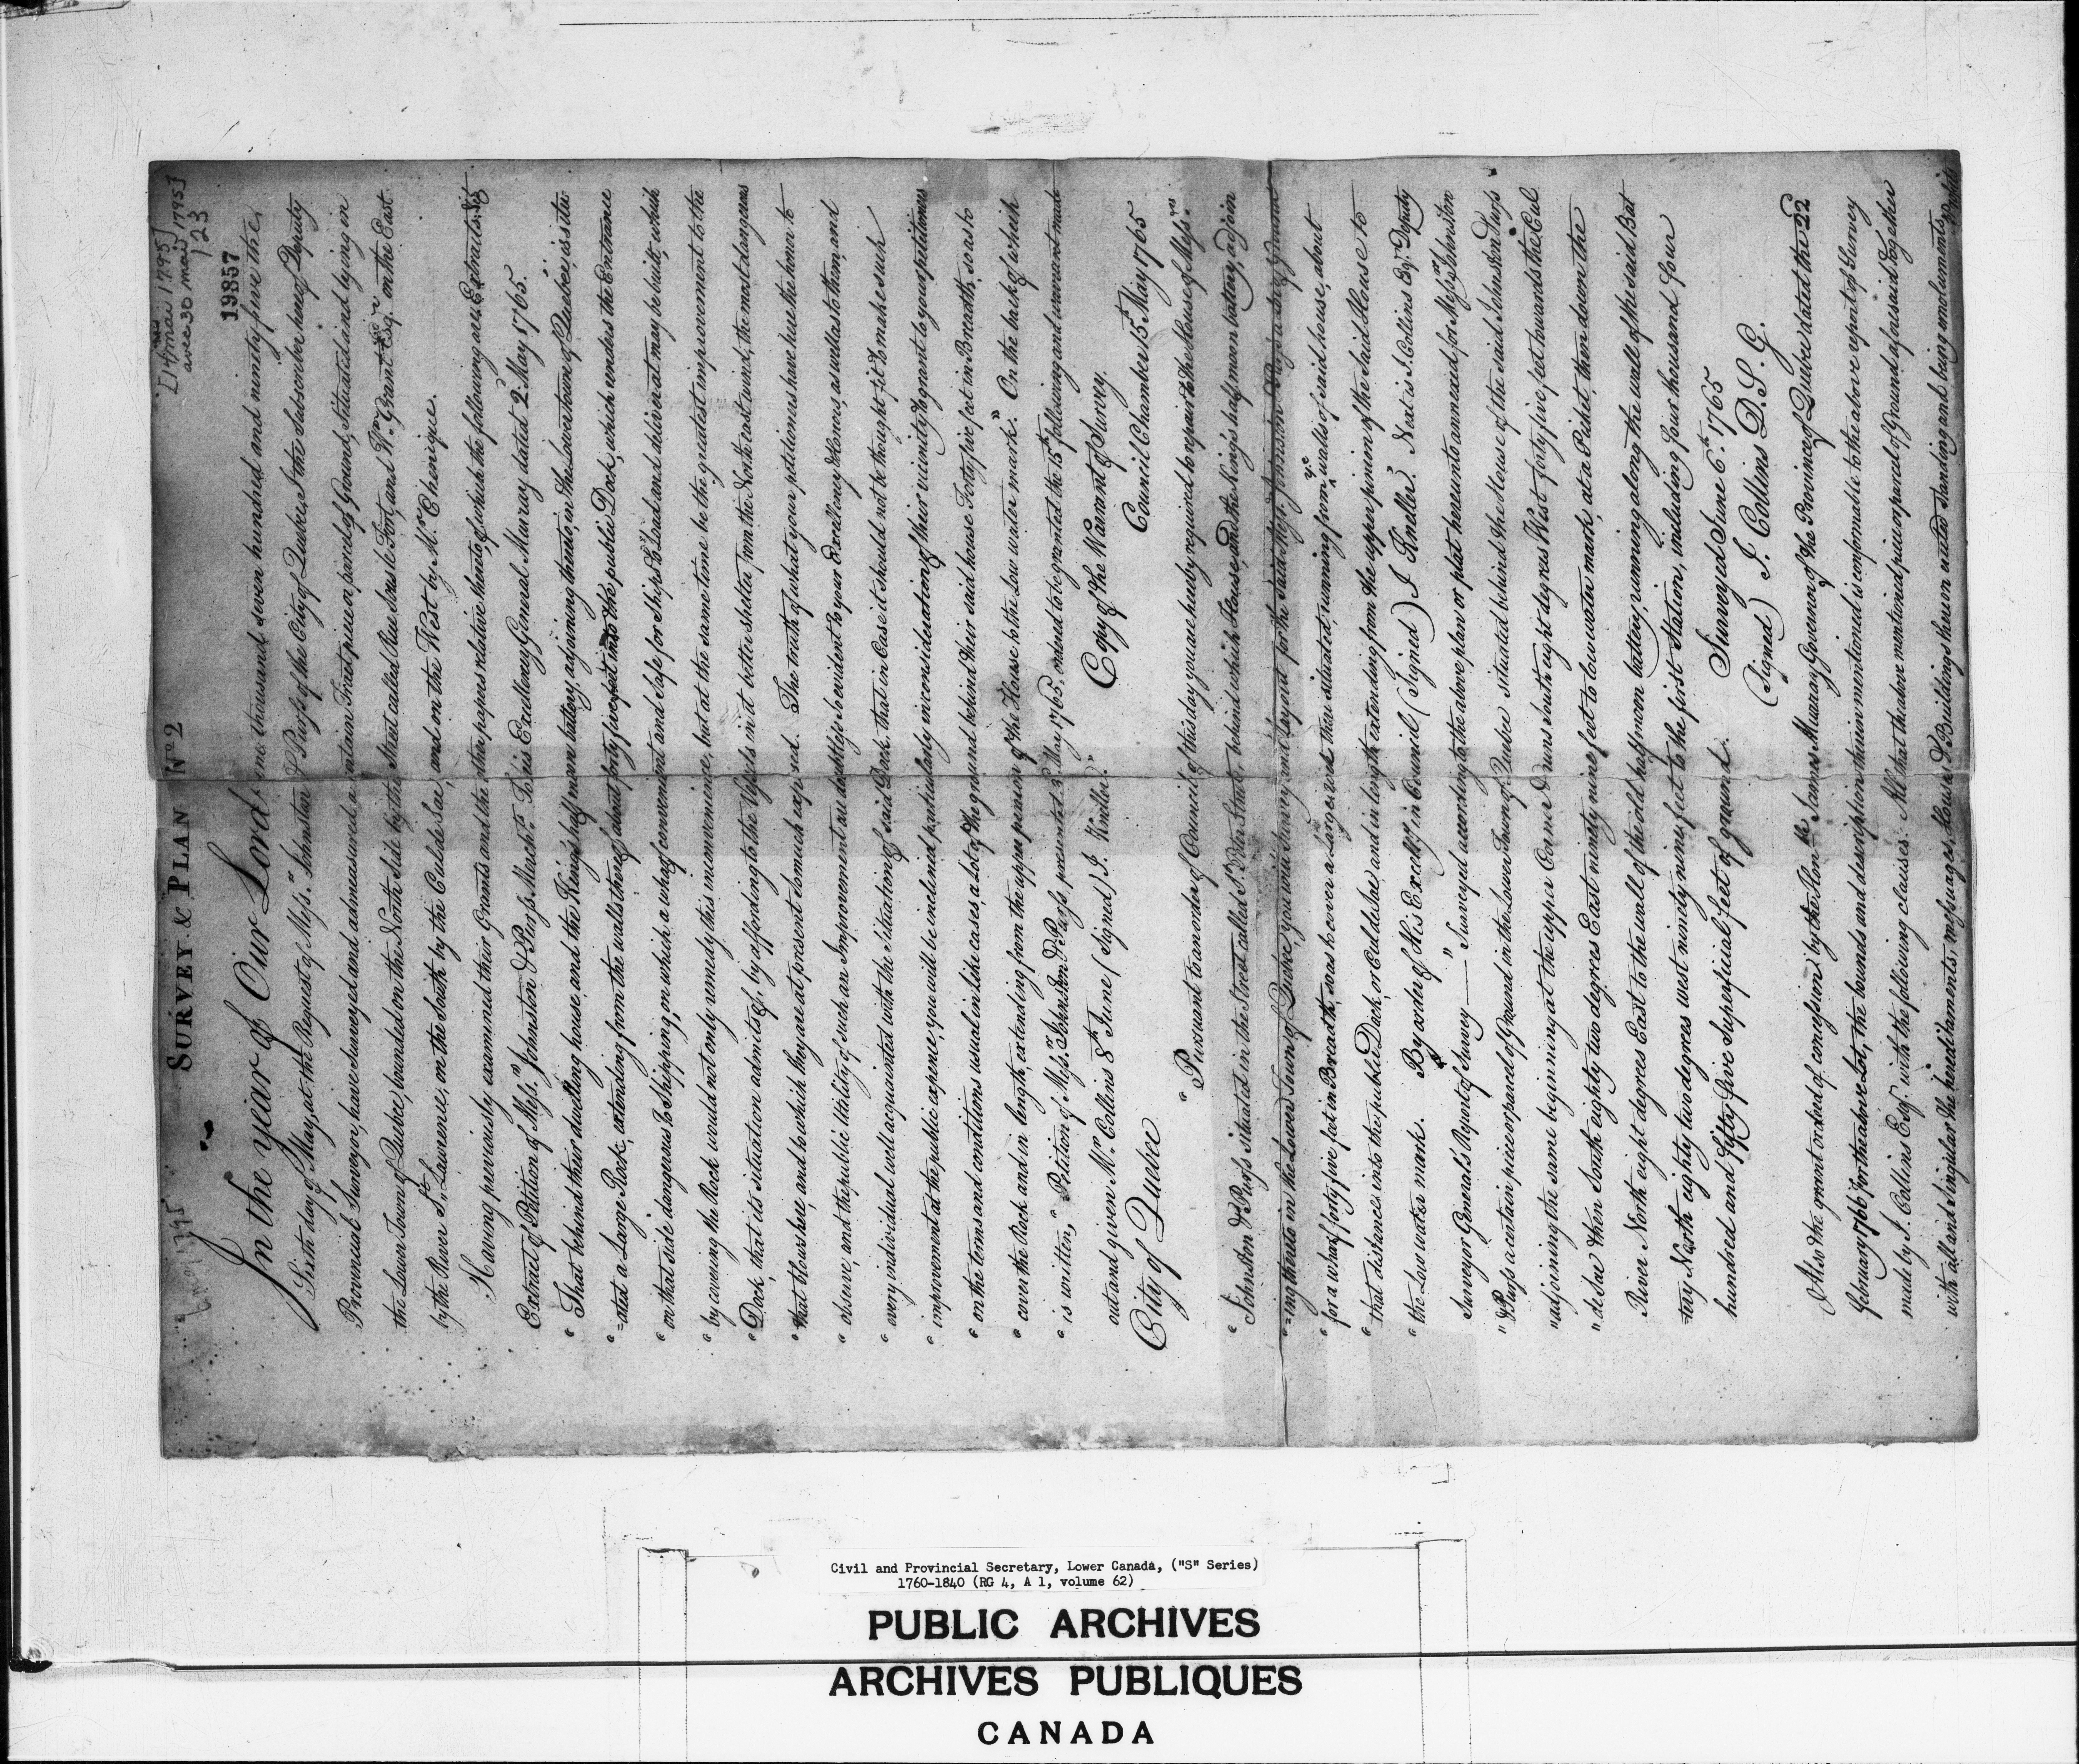 [14 mai 1795]
avec 30 mai 1795]
123
19857
6 May 1795
SURVEY & PLAN No 2
In the year of Our Lord, one thousand seven hundred and ninety five the
Sixth day of May, at the Request of Messrs. Johnston & Purss of the City of Quebec, I the Subscriber hereof Deputy
Provincial Surveyor, have Surveyed and admeasured a certain Tract piece or parcel of Ground, Situated and lying in
the Lower Town of Quebec, bounded on the North Side by the Street called Rue Sous le Fort, and Wm. Grant Esq. on the East
by the River St. Lawrence, on the South by the Cul de Sac, and on the West by Mr. Chenique.
Having previously examined their Grants and the other papers relative thereto, of which the following are Extracts. Viz
Extract of Petition of Messrs. Johnston & Purss Merchts. To his Excellency General Murray dated 2d May 1765.
" That behind their dwelling house, and the King's half moon battery, adjoining thereto, in the Lower town of Quebec, is situ
"=ated a Large Rock, extending from the walls thereof about forty five feet into the public Dock, which renders the Entrance
" on that side dangerous to Shipping, on which a wharf convenient and safe for Ships to Load and deliver at may be built, which
" by covering the Rock would not only remedy this inconvenience, but at the same time be the greatest improvement to the
" Dock, that its situation admits of, by affording to the Vessels in it better shelter from the North east wind, the most dangerous
" that blows here, and to which they are at present so much exposed. The truth of what your petitioners have here the honor to
" observe, and the public Utility of such an Improvement are doubtless evident to your Excellency & Honors, as well as to them, and
" every individual well acquainted with the Situation of said Dock, that in Case it should not be thought fit to make such
" improvement at the public expence, you will be inclined particularly in consideration of their vicinity to grant to your petitioners
" on the terms and conditions usual in like cases, a lot of the ground behind their said house Forty five feet in Breadth, so as to
" cover the Rock and in length, extending from the upper pennion of the House to the Low water mark". On the back of which
" is written, "Petition of Messrs. Johnston & Purss presented 3d May 1765, ordered to be granted the 15th following and warrant made
out and given Mr. Collins 8th June (Signed) J. Kneller."
Copy of the Warrant of Survey.
City of Quebec
Council Chamber 15th May 1765
" Pursuant to an order of Council of this day you are hereby required to repair to the house of Messrs.
" Johnston & Purss situated in the Street called St. Peter Street, behind which House, and the King's half moon battery, adjoin
"=ing thereto in the Lower Town of Quebec, you will survey and lay out for the said Messrs. Johnston & Purss a lot of Ground
" for a wharf forty five feet in Breadth, so as to cover a Large rock there situated, running from ye walls of said house, about
" that distance into the public Dock, or Cul de Sac, and in length extending from the upper pinnion of the said House to
" the Low water mark. By order of His Excelly. in Council (Signed) J Kneller". Next is J. Collins Esqr. Deputy
Surveyor General's Report of Survey — " Surveyed according to the above plan or plat hereunto annexed for Messrs Johnston
" & Purss a certain piece or parcel of Ground in the Lower Town of Quebec situated behind the House of the said Johnston & Purss
" adjoining the same beginning at the upper Corner & runs South eight degrees West forty five feet towards the Cul
" de Sac then South eighty two degrees East ninety nine feet to low water mark, at a Picket, then down the
River North eight degrees East to the wall of the old half moon battery, running along the wall of the said Bat
tery North eighty two degrees west ninety nine feet to the first Station, including Four thousand Four
hundred and fifty five Superficial feet of ground.
Surveyed June 6th 1765
(Signed) J. Collins D.S.G.
Also the grant or deed of concession by the Honble. James Murray Governor of the Province of Quebec dated the 22
February 1766 for the above Lot, the bounds and description therein mentioned is conformable to the above report of Survey
made by J. Collins Esqr. with the following clauses. All that the above mentioned piece or parcel of Ground aforesaid together
with all and singular the hereditaments, messuages, Houses & Buildings hereon erected standing and being emoluments,
Profits
Civil and Provincial Secretary, Lower Canada, ("S" Series)
1760-1840 (RG 4, A 1, volume 62)
PUBLIC ARCHIVES
ARCHIVES PUBLIQUES
CANADA